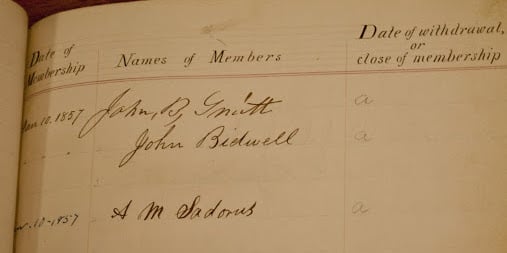 Date of Membership
Names of Members
Date of withdrawal, or close of membership
Jan. 10. 1857 John, B, a
" " John Bidwell a
10-1857 A M Sadorus a